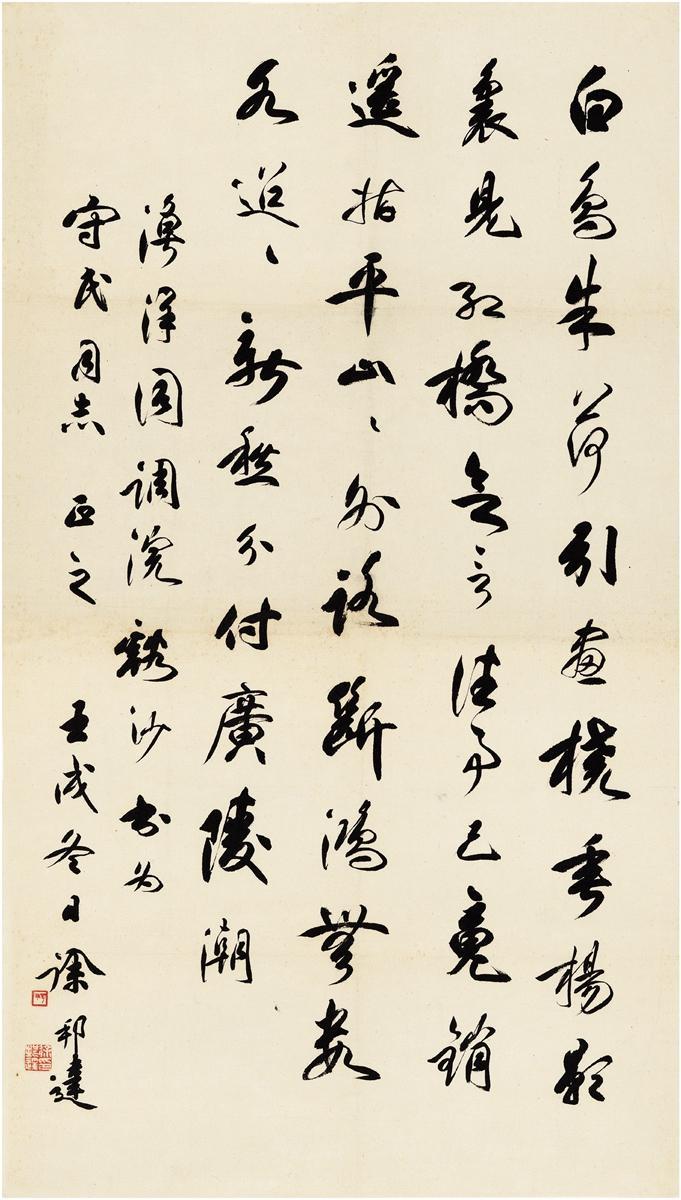 白鳥朱荷引畫橈垂楊影
裏見紅橋欲尋往事已魂銷
遥指平山〻外路斷鴻無數
水迢〻新愁分付廣陵潮
漁洋調浣谿沙書为
守民同志正之 壬戌冬日徐邦達